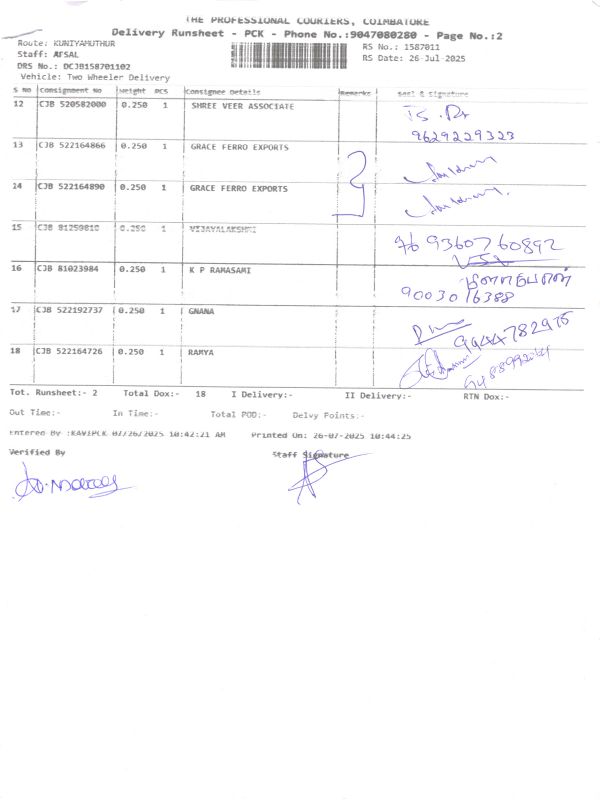 THE PROFESSIONAL COURIERS, COIMBATORE
Delivery Runsheet - PCK - Phone No.:9047080280 - Page No.:2
Route: KUNIYAMUTHUR
RS No.: 1587011
Staff: AFSAL
RS Date: 26-Jul-2025
DRS No.: DCJB158701102
Vehicle: Two Wheeler Delivery
S No Consignment No Weight PCS Consignee Details Remarks Seal & Signature
12 CJB 520582000 0.250 1 SHREE VEER ASSOCIATE
9629229323
13 CJB 522164866 0.250 1 GRACE FERRO EXPORTS
14 CJB 522164890 0.250 1 GRACE FERRO EXPORTS
15 CJB 81259810 0.250 1 VIJAYALAKSHMI 9360760892
16 CJB 81023984 0.250 1 K P RAMASAMI
9003016388
17 CJB 522192737 0.250 1 GNANA 9944782975
18 CJB 522164726 0.250 1 RAMYA
Tot. Runsheet:- 2 Total Dox:- 18 I Delivery:- II Delivery:- RTN Dox:-
Out Time:- In Time:- Total POD:- Delvy Points:-
Entered By :KAVIPCK 07/26/2025 10:42:21 AM Printed On: 26-07-2025 10:44:25
Verified By Staff Signature